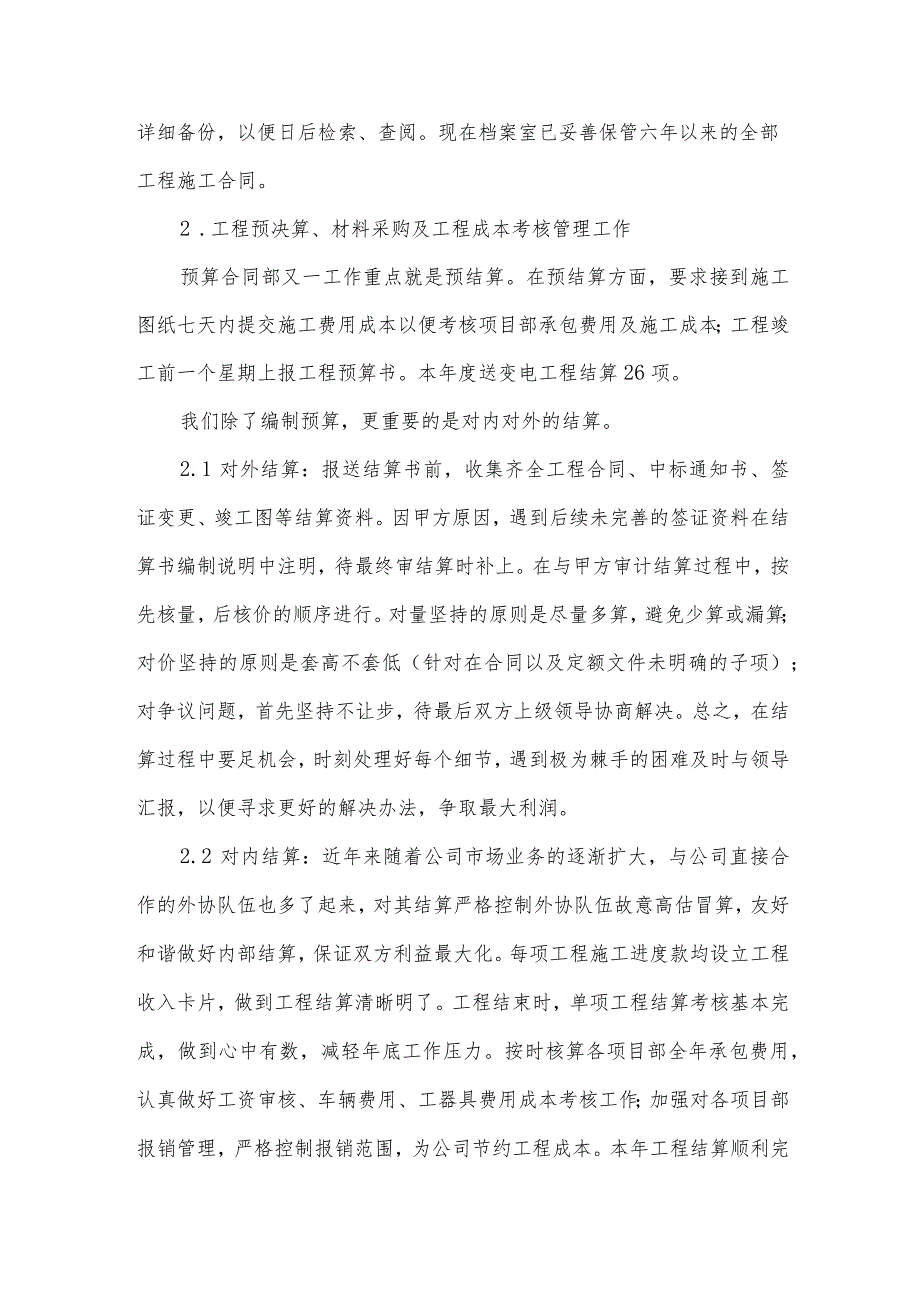 详细备份，以便日后检索、查阅。现在档案室已妥善保管六年以来的全部
工程施工合同。
2 .工程预决算、材料采购及工程成本考核管理工作
预算合同部又一工作重点就是预结算。在预结算方面，要求接到施工
图纸七天内提交施工费用成本以便考核项目部承包费用及施工成本；工程竣
工前一个星期上报工程预算书。本年度送变电工程结算 26 项。
我们除了编制预算，更重要的是对内对外的结算。
2.1 对外结算：报送结算书前，收集齐全工程合同、中标通知书、签
证变更、竣工图等结算资料。因甲方原因，遇到后续未完善的签证资料在结
算书编制说明中注明，待最终审结算时补上。在与甲方审计结算过程中，按
先核量，后核价的顺序进行。对量坚持的原则是尽量多算，避免少算或漏算；
对价坚持的原则是套高不套低（针对在合同以及定额文件未明确的子项）；
对争议问题，首先坚持不让步，待最后双方上级领导协商解决。总之，在结
算过程中要足机会，时刻处理好每个细节，遇到极为棘手的困难及时与领导
汇报，以便寻求更好的解决办法，争取最大利润。
2.2 对内结算：近年来随着公司市场业务的逐渐扩大，与公司直接合
作的外协队伍也多了起来，对其结算严格控制外协队伍故意高估冒算，友好
和谐做好内部结算，保证双方利益最大化。每项工程施工进度款均设立工程
收入卡片，做到工程结算清晰明了。工程结束时，单项工程结算考核基本完
成，做到心中有数，减轻年底工作压力。按时核算各项目部全年承包费用，
认真做好工资审核、车辆费用、工器具费用成本考核工作；加强对各项目部
报销管理，严格控制报销范围，为公司节约工程成本。本年工程结算顺利完